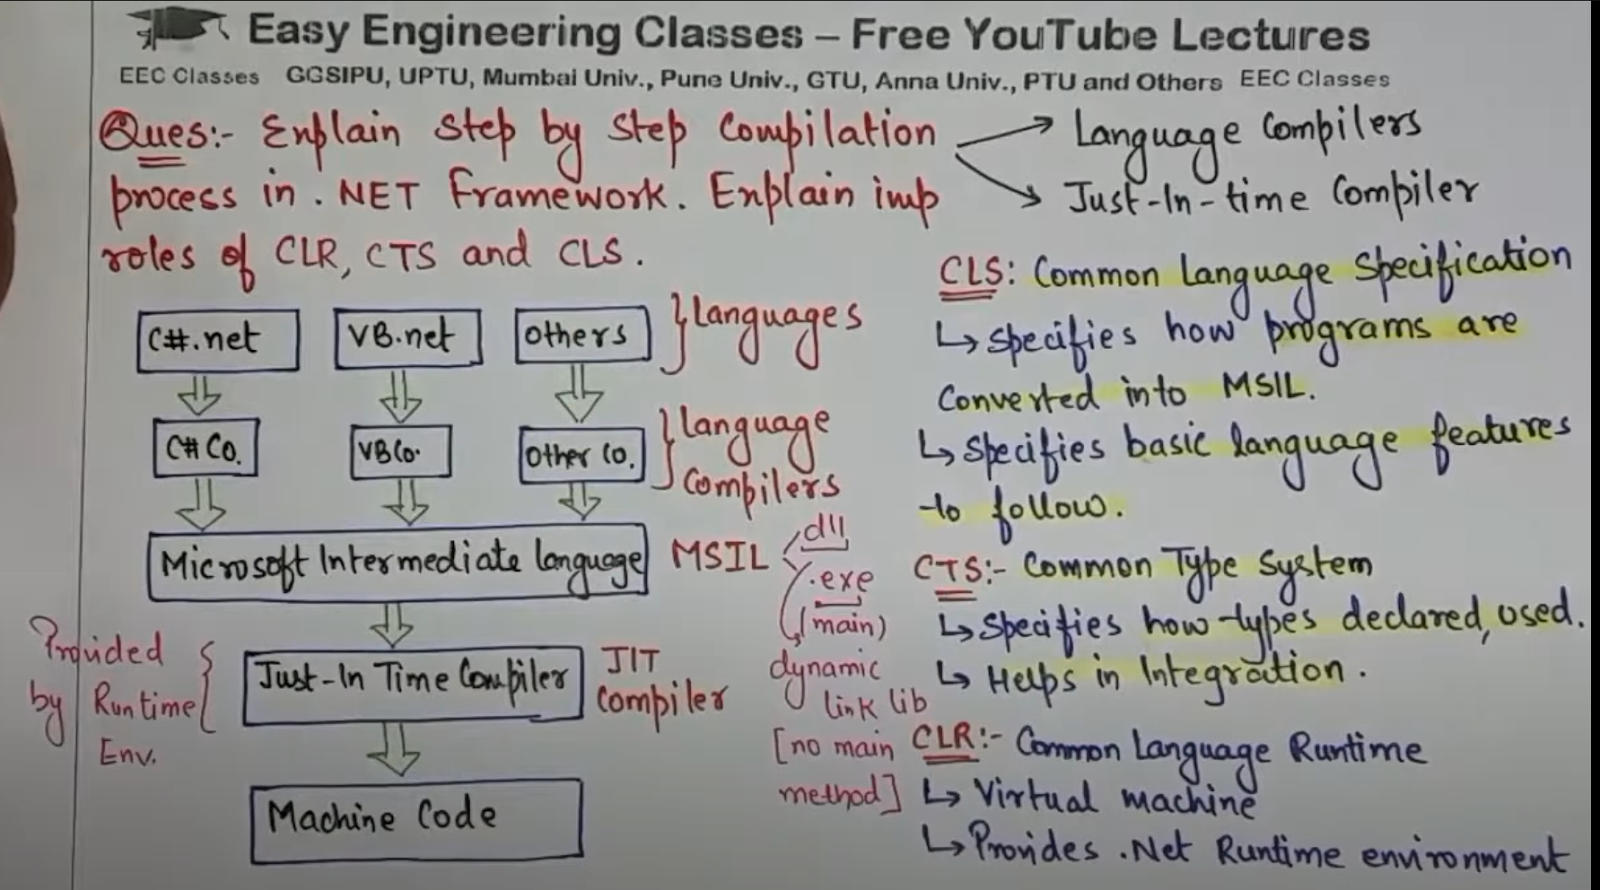 Easy Engineering Classes – Free YouTube Lectures
EEC Classes GGSIPU, UPTU, Mumbai Univ., Pune Univ., GTU, Anna Univ., PTU and Others EEC Classes
Ques:- Explain Step by Step Compilation
process in .NET Framework. Explain imp
roles of CLR, CTS and CLS.
Language Compilers
Just-In-time Compiler
C#.net
VB.net
others
Languages
C# Co.
VB Co.
Other Co.
Language
Compilers
Microsoft Intermediate language
MSIL
.dll
.exe
(main)
dynamic
link lib
[no main
method]
Provided
by Runtime
Env.
Just-In Time Compiler
JIT
Compiler
Machine Code
CLS: Common Language Specification
↳ Specifies how programs are
Converted into MSIL.
↳ Specifies basic language features
to follow.
CTS:- Common Type System
↳ Specifies how types declared, used.
↳ Helps in Integration.
CLR:- Common Language Runtime
↳ Virtual machine
↳ Provides .Net Runtime environment